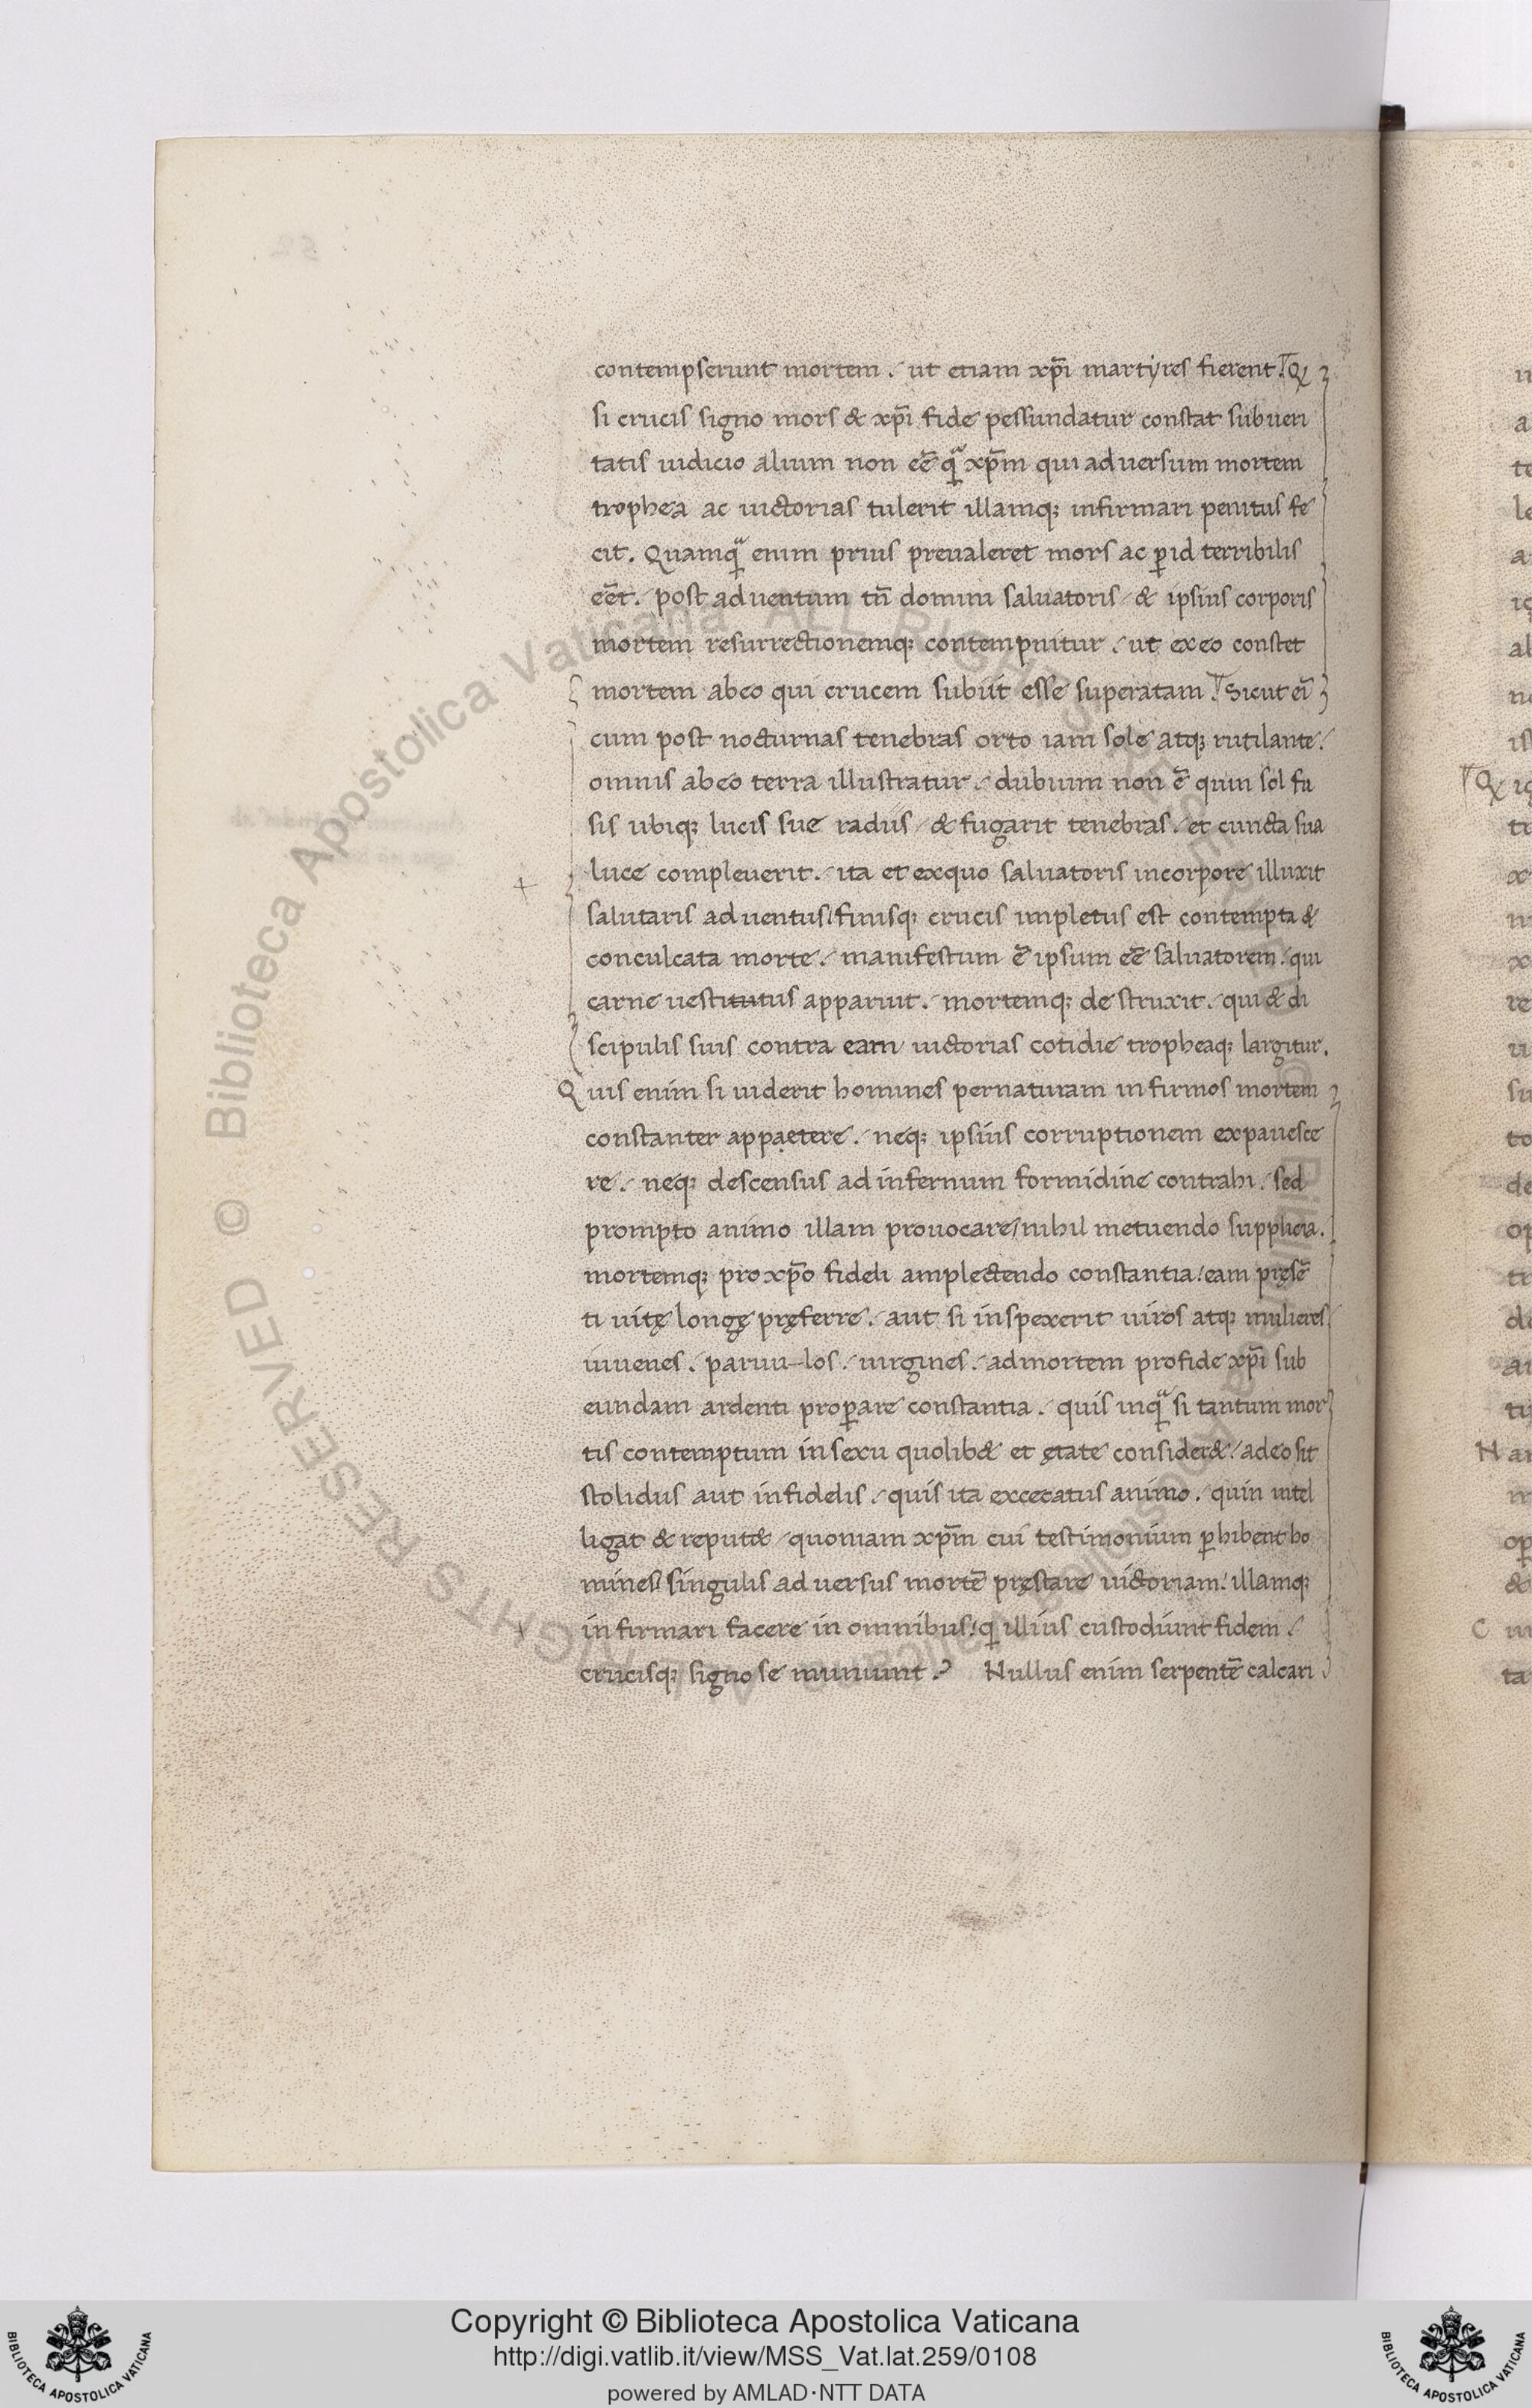 contempserunt mortem. ut etiam xp̄i martyres fierent. Q
si crucis signo mors & xp̄i fide pessundatur constat sub ueri
tatis iudicio alium non eē̄ qͣ xp̄m qui aduersum mortem
trophea ac uictorias tulerit illamq; infirmari penitus fe
cit. Quamqͣ enim prius preualeret mors ac ꝑ id terribilis
eēt. post aduentum tn̄ domini saluatoris & ipsius corporis
mortem resurrectionemq; contempnitur. ut ex eo constet
mortem ab eo qui crucem subiit esse superatam. Sicut ei̅
cum post nocturnas tenebras orto iam sole atq; rutilante.
omnis ab eo terra illustratur. dubium non ē quin sol fu
sis ubiq; lucis sue radiis & fugarit tenebras. et cuncta sua
luce compleuerit. ita et ex quo saluatoris in corpore illuxit
salutaris aduentus finisq; crucis impletus est contempta &
conculcata morte. manifestum ē ipsum eē saluatorem. qui
carne uestitutus apparuit. mortemq; destruxit. qui & di
scipulis suis contra eam uictorias cotidie tropheaq; largitur.
Quis enim si uiderit homines per naturam infirmos mortem
constanter appaetere. neq; ipsius corruptionem expauesce
re. neq; descensus ad infernum formidine contrahi. sed
prompto animo illam prouocare nihil metuendo supplicia.
mortemq; pro xp̄o fideli amplectendo constantia eam pręsē
ti uitę longę pręferre. aut si inspexerit uiros atq; mulieres
iuuenes. paruu-los. uirgines. ad mortem pro fide xp̄i sub
eundam ardenti proꝑare constantia. quis inqͣ si tantum mor
tis contemptum in sexu quolib& et ętate consider& adeo sit
stolidus aut infidelis. quis ita excecatus animo. quin intel
ligat & reput& quoniam xp̄m cui testimonium ꝑhibent ho
mines singulis aduersus mortē pręstare uictoriam. illamq;
infirmari facere in omnibus q illius custodiunt fidem.
crucisq; signo se muniunt.? Nullus enim serpentē calcari
Copyright © Biblioteca Apostolica Vaticana
http://digi.vatlib.it/view/MSS_Vat.lat.259/0108
powered by AMLAD·NTT DATA